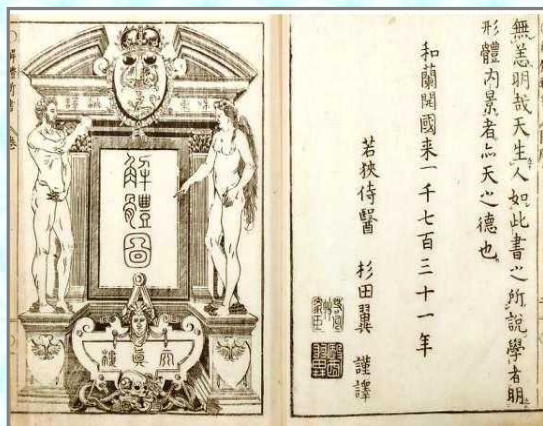 無恙明哉天生人如此書之所説學者明
形體内景者亦天之德也
和蘭開國来一千七百三十一年
若狹侍醫 杉田翼 謹譯
解體圖
天真樓